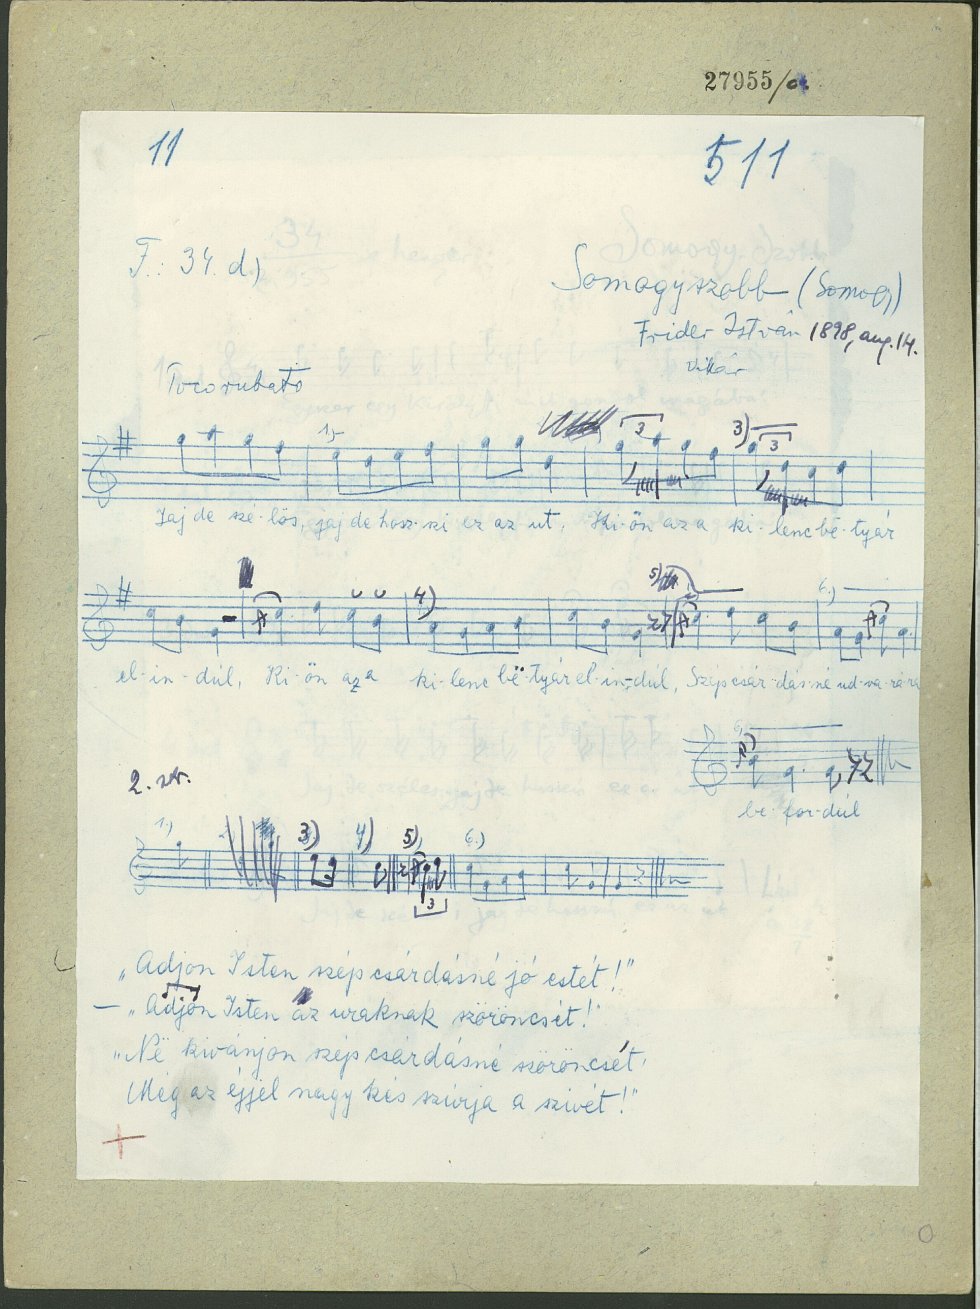 27955/a
11
511
F.: 34. d.)
Somogyszobb (Somogy)
Frider István 1898, aug. 14.
Vikár
Poco rubato
1)
3
3)
3
Jaj de szé-lös, jaj de hosz-szi ez az ut, Ki-ön az a ki-lenc bë-tyár
4)
5)
6.)
el-in-dúl, Ki-ön az a ki-lenc bë-tyár el-in-dúl, Szép csár-dás-né ud-va-rá-ra
6.
be-for-dúl
2. str.
1.)
3)
4)
5)
6.)
3
„Adjon Isten szép csárdásné jó estét!"
— „Adjon Isten az uraknak szöröncsét!"
„Në kivánjon szép csárdásné szöröncsét,
Még az éjjel nagy kés szívja a szivét!"